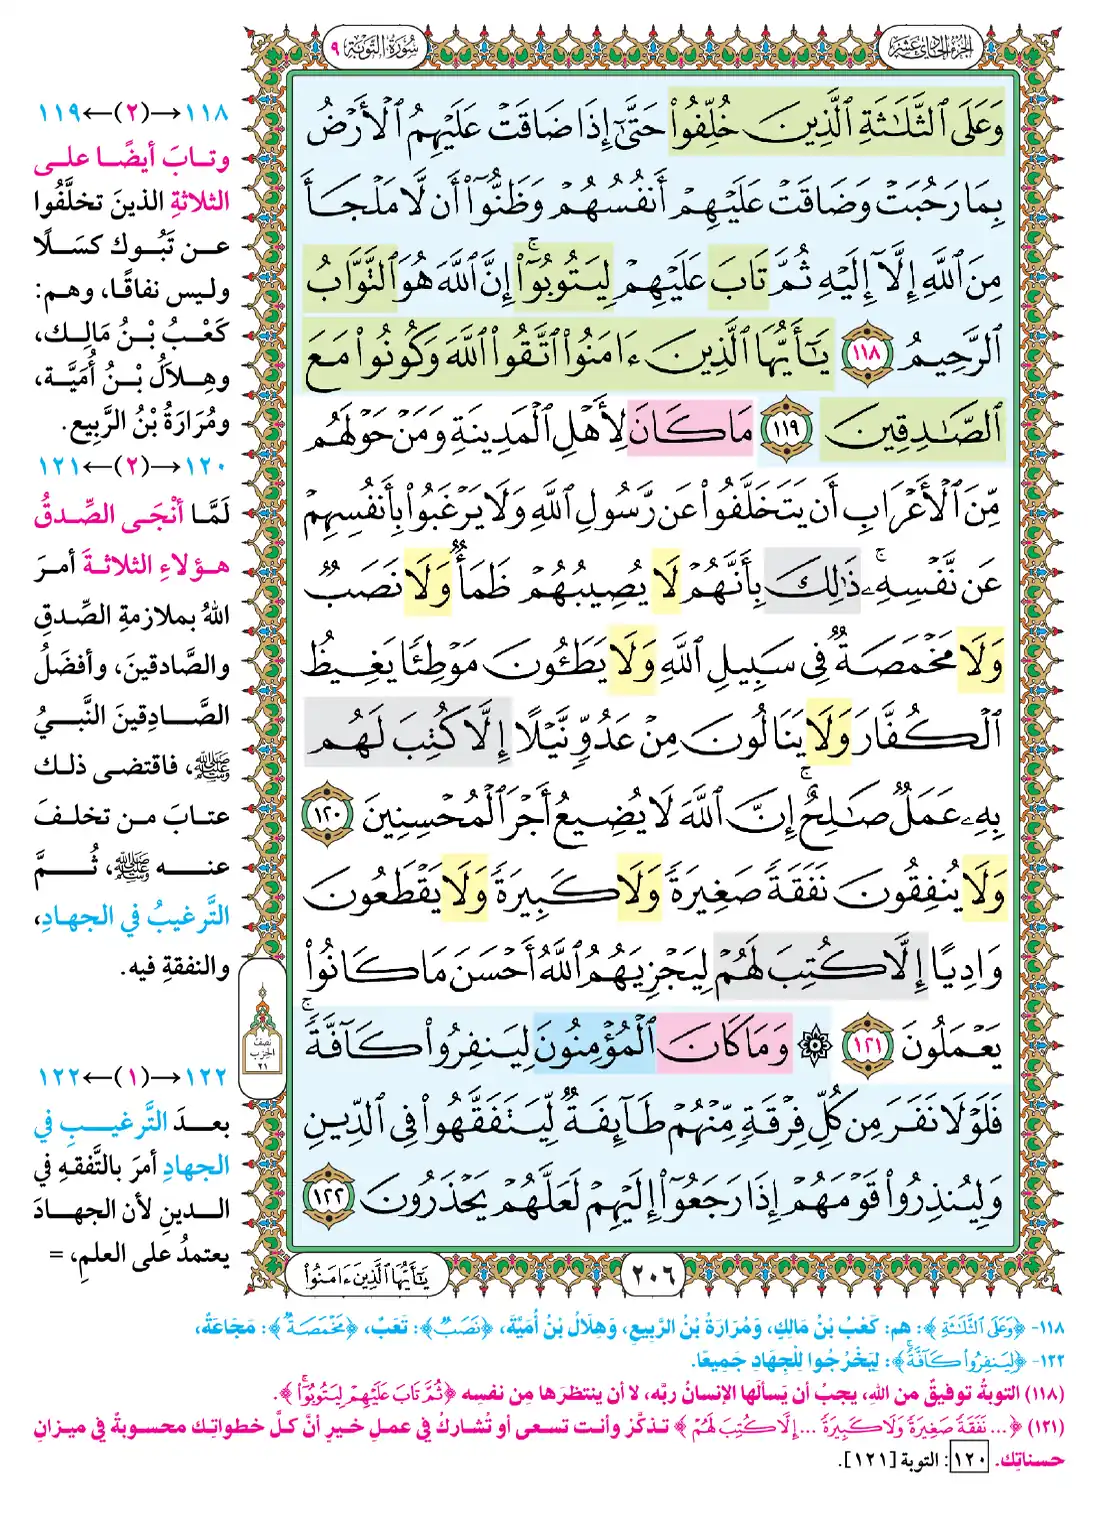 الجزء الحادي عشر
سورة التوبة ٩
وَعَلَى ٱلثَّلَٰثَةِ ٱلَّذِينَ خُلِّفُوا۟ حَتَّىٰٓ إِذَا ضَاقَتْ عَلَيْهِمُ ٱلْأَرْضُ
بِمَا رَحُبَتْ وَضَاقَتْ عَلَيْهِمْ أَنفُسُهُمْ وَظَنُّوٓا۟ أَن لَّا مَلْجَأَ
مِنَ ٱللَّهِ إِلَّآ إِلَيْهِ ثُمَّ تَابَ عَلَيْهِمْ لِيَتُوبُوٓا۟ ۚ إِنَّ ٱللَّهَ هُوَ ٱلتَّوَّابُ
ٱلرَّحِيمُ ١١٨ يَٰٓأَيُّهَا ٱلَّذِينَ ءَامَنُوا۟ ٱتَّقُوا۟ ٱللَّهَ وَكُونُوا۟ مَعَ
ٱلصَّٰدِقِينَ ١١٩ مَا كَانَ لِأَهْلِ ٱلْمَدِينَةِ وَمَنْ حَوْلَهُم
مِّنَ ٱلْأَعْرَابِ أَن يَتَخَلَّفُوا۟ عَن رَّسُولِ ٱللَّهِ وَلَا يَرْغَبُوا۟ بِأَنفُسِهِمْ
عَن نَّفْسِهِۦ ۚ ذَٰلِكَ بِأَنَّهُمْ لَا يُصِيبُهُمْ ظَمَأٌ وَلَا نَصَبٌ
وَلَا مَخْمَصَةٌ فِى سَبِيلِ ٱللَّهِ وَلَا يَطَـُٔونَ مَوْطِئًا يَغِيظُ
ٱلْكُفَّارَ وَلَا يَنَالُونَ مِنْ عَدُوٍّ نَّيْلًا إِلَّا كُتِبَ لَهُم
بِهِۦ عَمَلٌ صَٰلِحٌ ۚ إِنَّ ٱللَّهَ لَا يُضِيعُ أَجْرَ ٱلْمُحْسِنِينَ ١٢٠
وَلَا يُنفِقُونَ نَفَقَةً صَغِيرَةً وَلَا كَبِيرَةً وَلَا يَقْطَعُونَ
وَادِيًا إِلَّا كُتِبَ لَهُمْ لِيَجْزِيَهُمُ ٱللَّهُ أَحْسَنَ مَا كَانُوا۟
يَعْمَلُونَ ١٢١ ۞ وَمَا كَانَ ٱلْمُؤْمِنُونَ لِيَنفِرُوا۟ كَآفَّةً ۚ
فَلَوْلَا نَفَرَ مِن كُلِّ فِرْقَةٍ مِّنْهُمْ طَآئِفَةٌ لِّيَتَفَقَّهُوا۟ فِى ٱلدِّينِ
وَلِيُنذِرُوا۟ قَوْمَهُمْ إِذَا رَجَعُوٓا۟ إِلَيْهِمْ لَعَلَّهُمْ يَحْذَرُونَ ١٢٢
٢٠٦
يَٰٓأَيُّهَا ٱلَّذِينَ ءَامَنُوا۟
١١٨→(٢)←١١٩
وتـابَ أيضًـا علـى
الثلاثةِ الذينَ تخلَّفُوا
عن تَبُوك كسَلًا
وليس نفاقًا، وهم:
كَعْبُ بْنُ مَالِك،
وهِلَالُ بْنُ أُمَيَّة،
ومُرَارَةُ بْنُ الرَّبِيع.
١٢٠→(٢)←١٢١
لَمَّا أنْجَى الصِّدقُ
هؤلاءِ الثلاثةَ أمرَ
اللهُ بملازمةِ الصِّدقِ
والصَّادقينَ، وأفضَلُ
الصَّادِقينَ النَّبيُ
ﷺ، فاقتضى ذلك
عتابَ من تخلفَ
عنه ﷺ، ثُمَّ
التَّرغيبُ في الجهادِ،
والنفقةِ فيه.
نصف
الحزب
٢١
١٢٢→(١)←١٢٢
بعدَ التَّرغيبِ في
الجهادِ أمرَ بالتَّفقهِ في
الدينِ لأن الجهادَ
يعتمدُ على العلمِ، =
١١٨- ﴿وَعَلَى ٱلثَّلَٰثَةِ﴾: هم: كَعْبُ بْنُ مَالِكٍ، وَمُرَارَةُ بْنُ الرَّبِيعِ، وَهِلَالُ بْنُ أُمَيَّةَ، ﴿نَصَبٌ﴾: تَعَبٌ، ﴿مَخْمَصَةٌ﴾: مَجَاعَةٌ،
١٢٢- ﴿لِيَنفِرُوا۟ كَآفَّةً ۚ﴾: لِيَخْرُجُوا لِلْجِهَادِ جَمِيعًا.
(١١٨) التوبةُ توفيقٌ من اللهِ، يجبُ أن يَسألَها الإنسانُ ربَّه، لا أن ينتظرَها مِن نفسِه ﴿ثُمَّ تَابَ عَلَيْهِمْ لِيَتُوبُوٓا۟ ۚ﴾.
(١٢١) ﴿... نَفَقَةً صَغِيرَةً وَلَا كَبِيرَةً ... إِلَّا كُتِبَ لَهُمْ﴾ تذكَّرْ وأنت تسعى أو تُشاركُ في عملِ خيرٍ أنَّ كلَّ خطواتِك محسوبةٌ في ميزانِ
حسناتِك. ١٢٠: التوبة [١٢١].